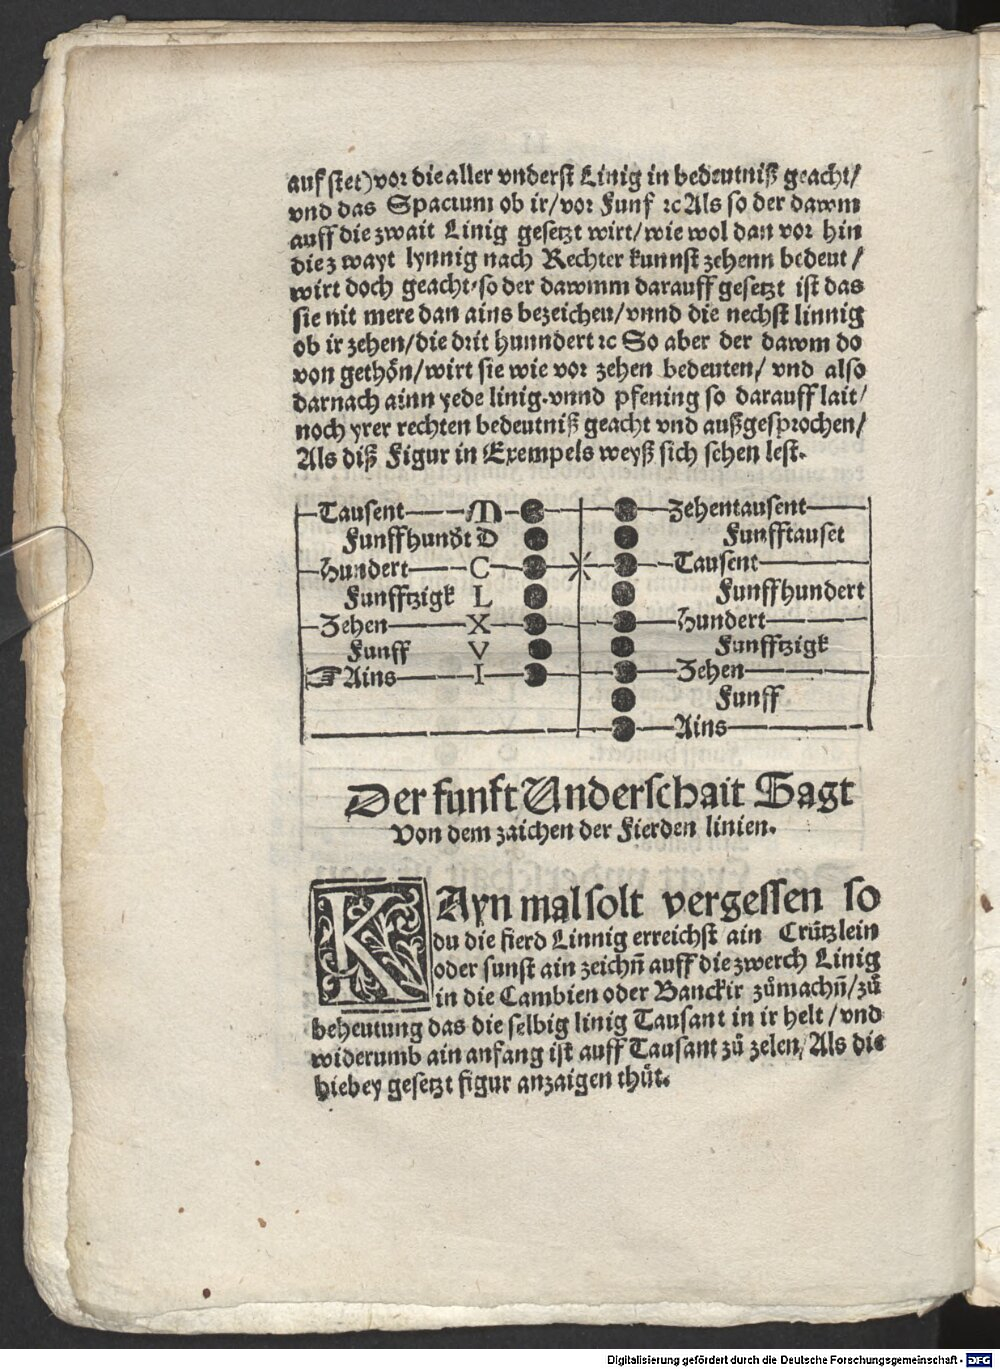 auf stet) vor die aller vnderst Linig in bedeutniß geacht/
vnd das Spacium ob ir/vor Funf ⁊c Als so der dawm
auff die zwait Linig gesetzt wirt/wie wol dan vor hin
die zwayt lynnig nach Rechter kunnst zehenn bedeut/
wirt doch geacht/so der dawmm darauff gesetzt ist das
sie nit mere dan ains bezeichen/vnnd die nechst linnig
ob ir zehen/die drit hunndert ⁊c So aber der dawm do
von gethon/wirt sie wie vor zehen bedeuten/ vnd also
darnach ainn yede linig.vnnd pfening so darauff lait/
noch yrer rechten bedeutniß geacht vnd außgesprochen/
Als diß Figur in Exempels weyß sich sehen lest.
Tausent M Zehentausent
Funffhundt D Funfftauset
Hundert C Tausent
Funfftzigk L Funffhundert
Zehen X Hundert
Funff V Funfftzigk
Ains I Zehen
Funff
Ains
Der funft Underschait Sagt
Von dem zaichen der Fierden linien.
KAyn mal solt vergessen so
du die fierd Linnig erreichst ain Crützlein
oder sunst ain zeichn̄ auff die zwerch Linig
in die Cambien oder Banckir zůmachn̄/zů
beheutung das die selbig linig Tausant in ir helt/vnd
widerumb ain anfang ist auff Tausant zů zelen/Als die
hiebey gesetzt figur anzaigen thůt.
Digitalisierung gefördert durch die Deutsche Forschungsgemeinschaft - DFG